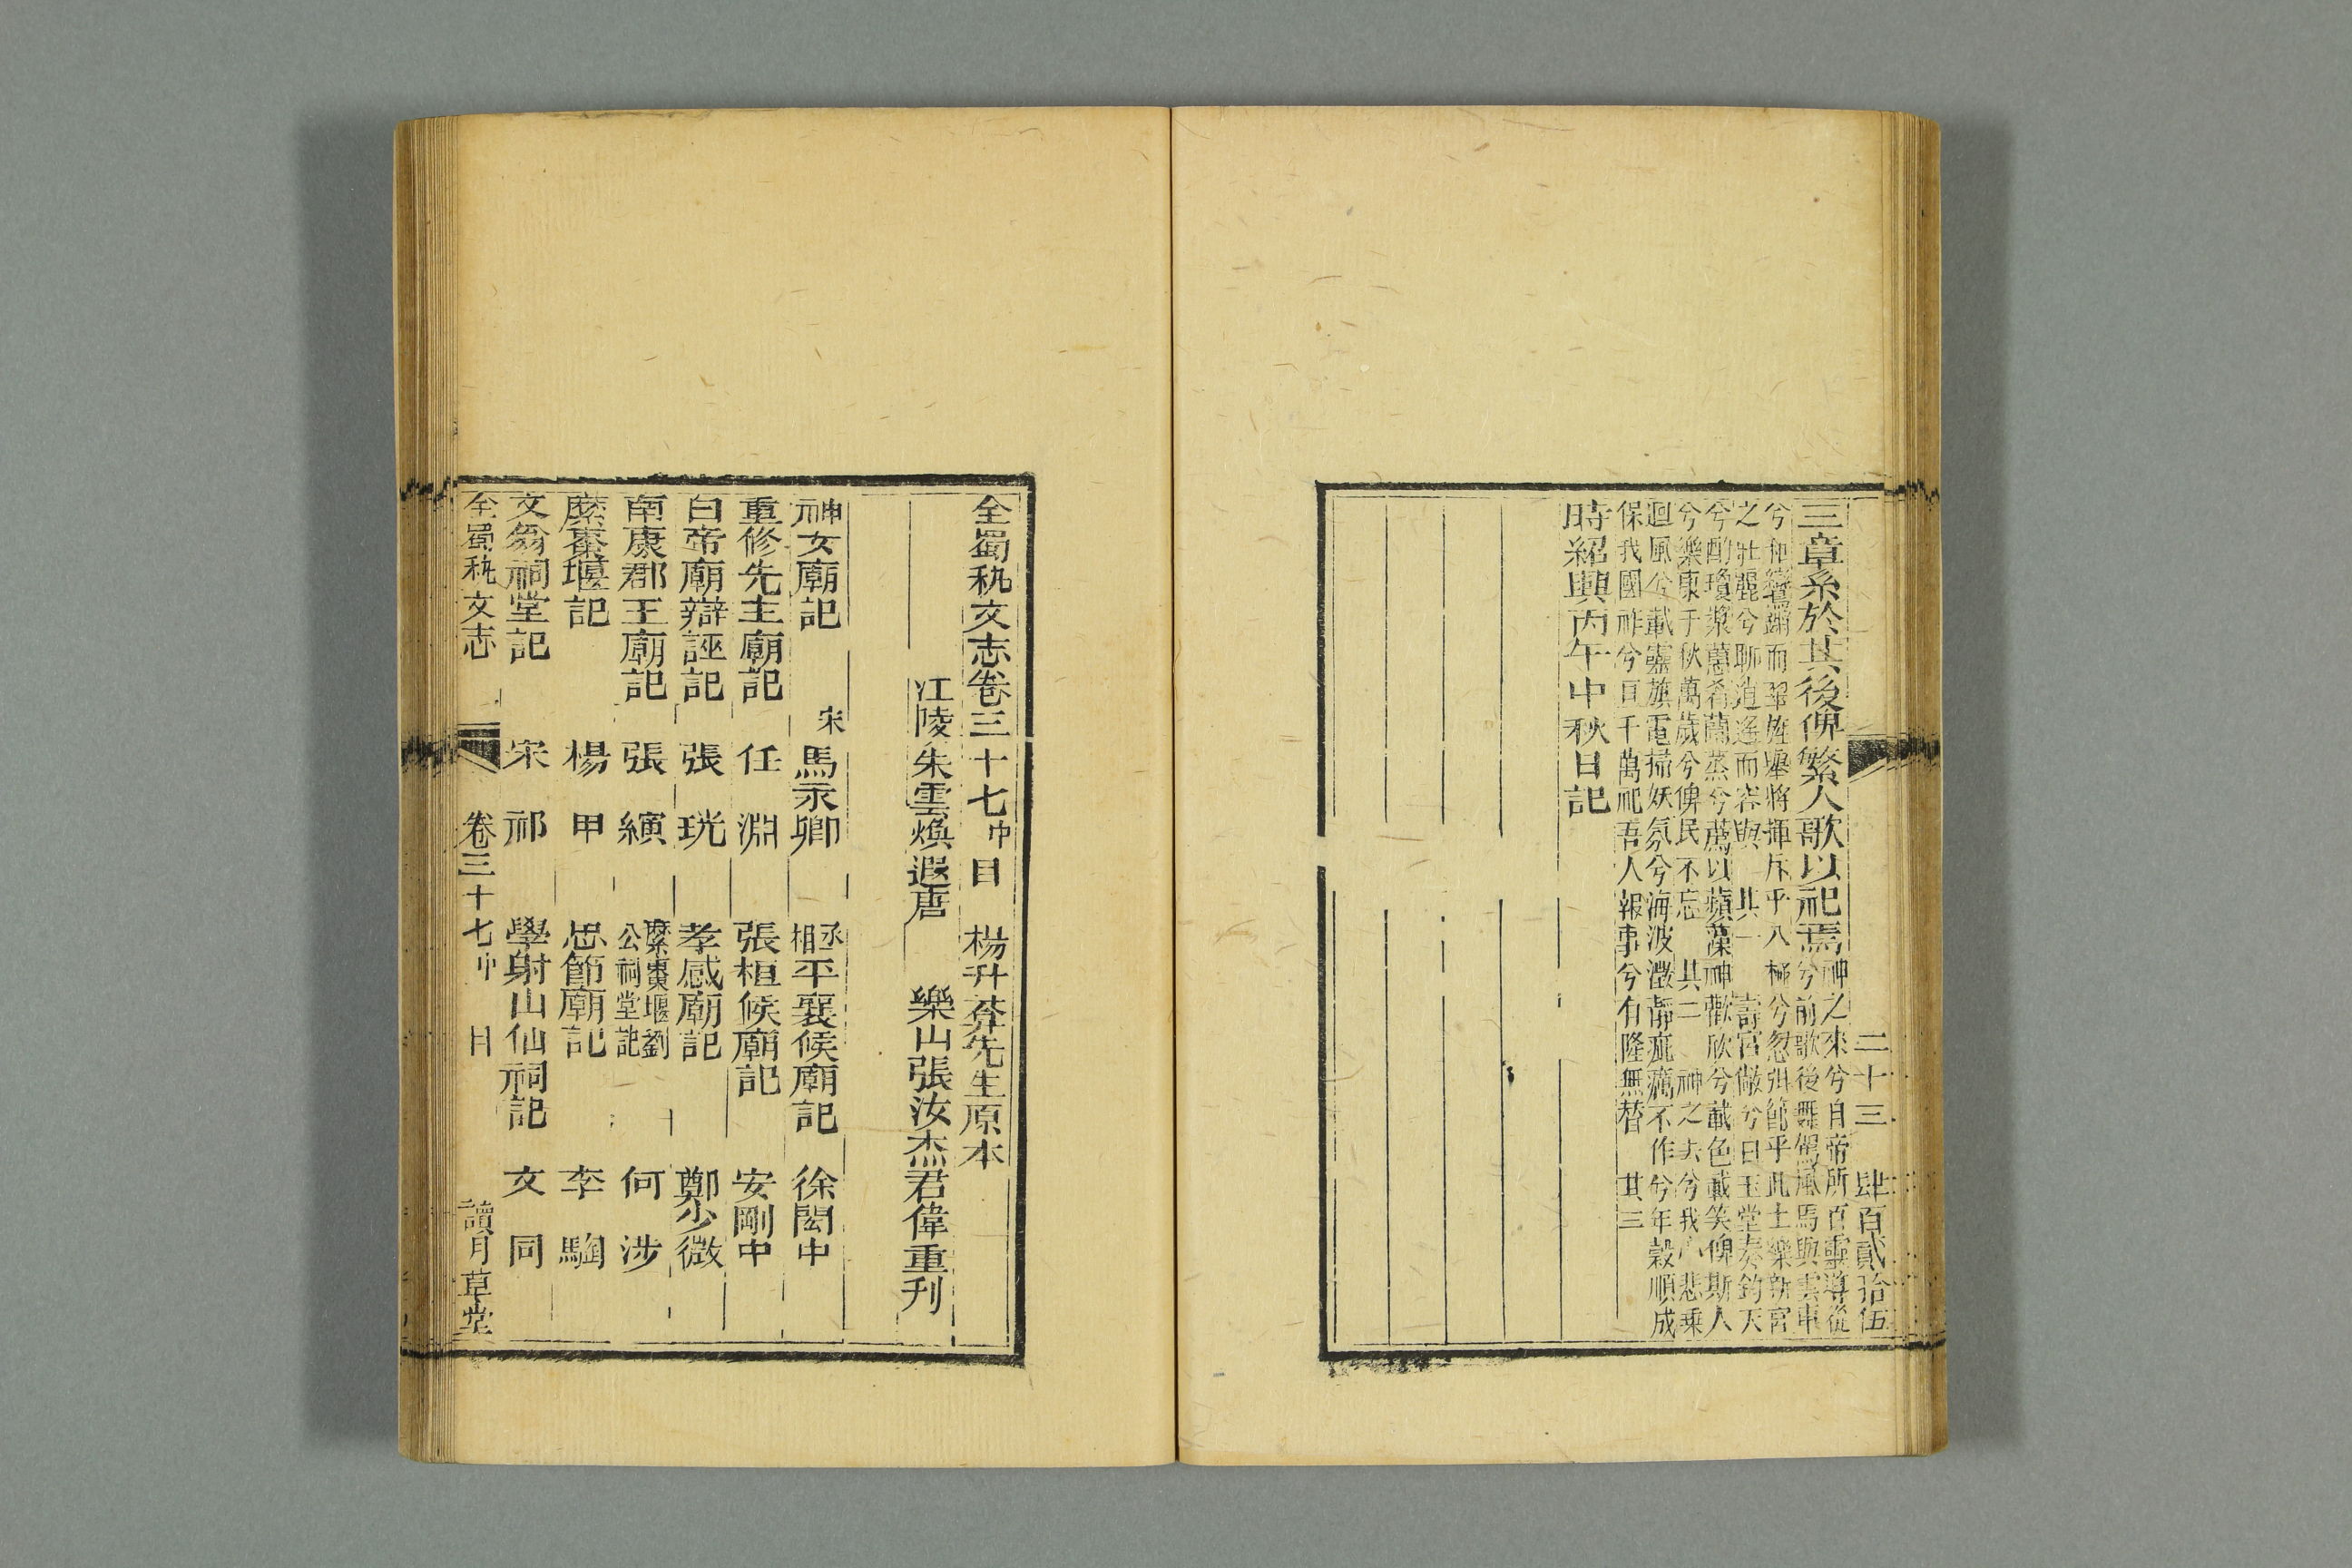 二十三 肆百貳拾伍
三章系於其後俾繁人歌以祀焉神之來兮自帝所百靈導從
兮前歌後舞駕風馬與雲車
兮和鸞鏘而翠旌舉將揮斥乎八極兮忽弭節乎此土樂新宮
之壯麗兮聊逍遙而容與 其一 壽宮儆兮曰玉堂奏鈞天
兮酌瓊漿蕙肴蘭蒸兮薦以蘋藻神歡欣兮載色載笑俾斯人
兮樂康千秋萬歲兮俾民不忘 其二 神之去兮我心悲乗
迴風兮載靈旗電掃妖氛兮海波澂靜疵癘不作兮年穀順成
保我國祚兮亘千萬祀吾人報事兮有隆無替 其三
時紹興丙午中秋日記
全蜀秇文志卷三十七中目 楊升菴先生原本
江陵朱雲煥遐唐 樂山張汝杰君偉重刊
神女廟記 宋 馬永卿 丞相平襄候廟記 徐閎中
重修先主廟記 任淵 張桓候廟記 安剛中
白帝廟辯誣記 張珖 孝感廟記 鄭少微
南康郡王廟記 張縯 縻棗堰劉公祠堂記 何涉
縻棗堰記 楊甲 忠節廟記 李騊
文翁祠堂記 宋祁 學射山仙祠記 文同
全蜀秇文志 卷三十七中 目 一 讀月草堂